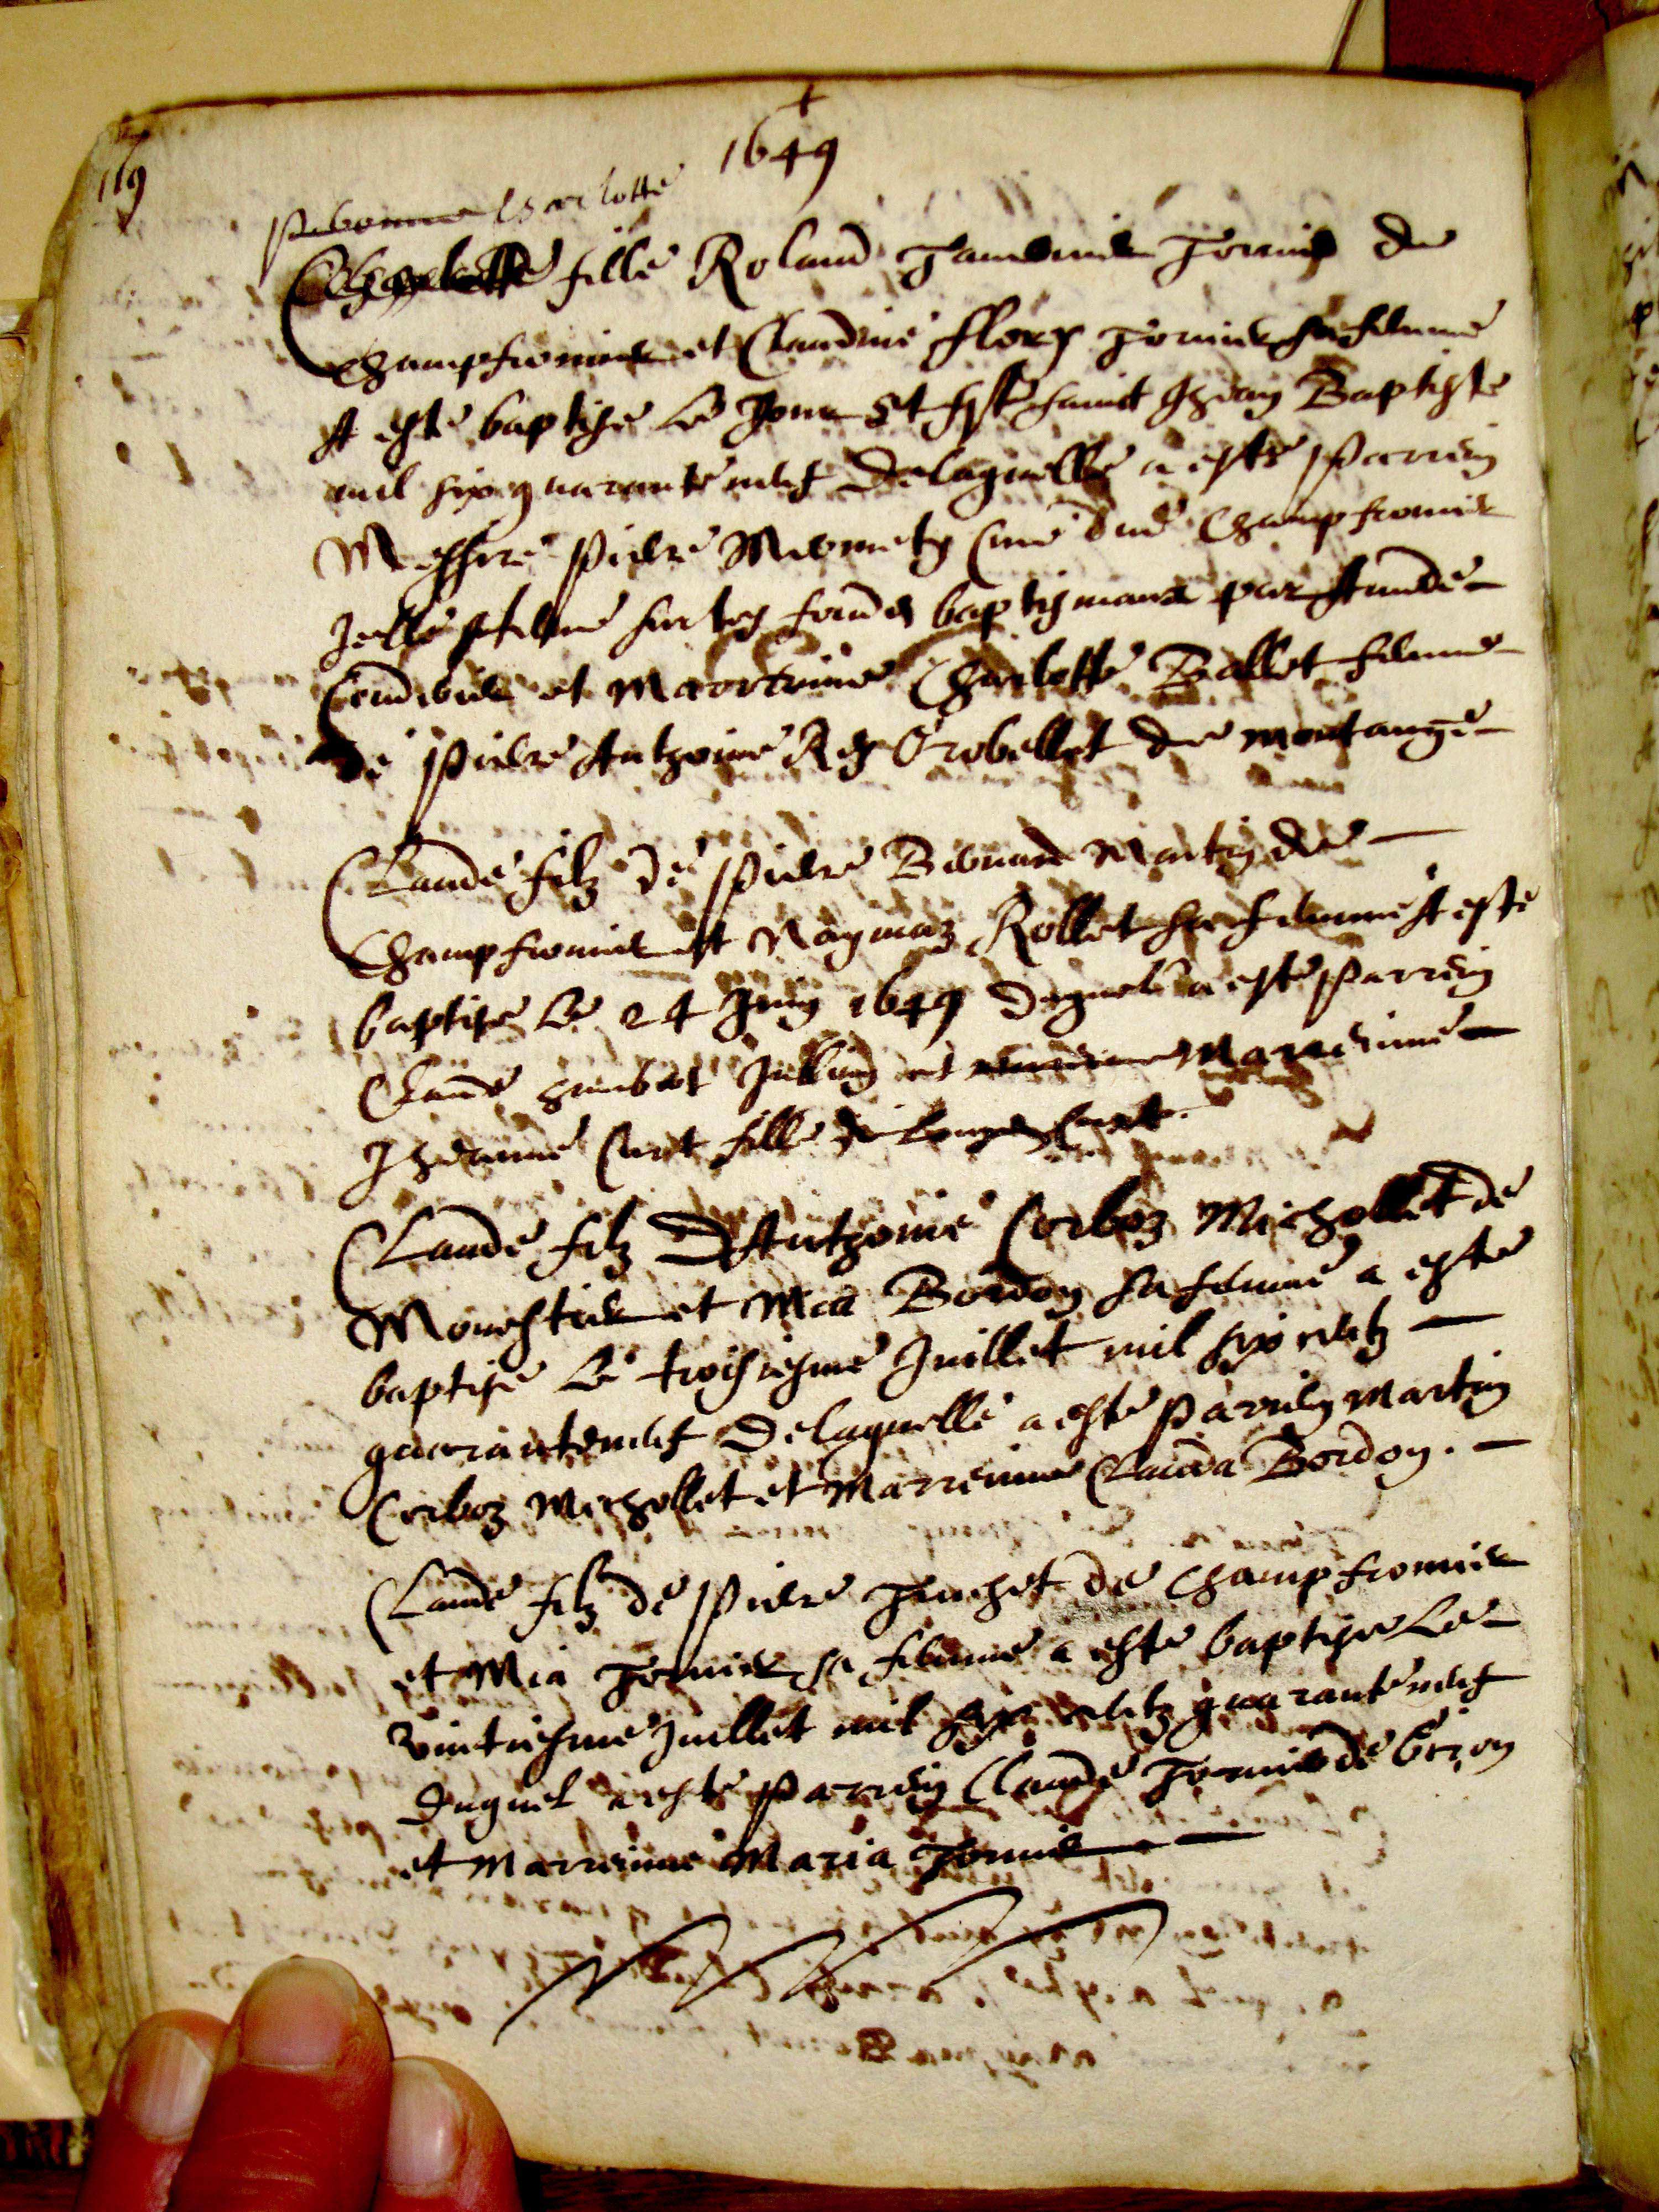 119
+
1649
Charlotte
Charlotte fille Roland Tavernier de
Champfromier et Claudine Flory Tornier sa femme
A esté baptisé le Jour St saint Jhean Baptiste
mil six quarante neuf Delaquelle a esté Parrein
Messire Pierre Curé dud Champfromier
Jcelle sur les fondz baptismaux par Claude
et Marreine Charlotte Ballet femme
de Pierre Anthoine Rey Grobellet de Montange
Claude filz de Pierre Martin de
Champfromier et Rollet sa femme A esté
baptisé le 24 Juin 1649 Duquel a esté Parrein
Claude Humbert Jullien et Marreinne
Jheanne Curt fille
Claude filz D'Anthoine Corboz Michollet de
Monestier et Mia Bordon sa femme a esté
baptisé le troisiesme Juillet mil six centz
quarante neuf Delaquelle a esté Parrein Martin
Corboz Michollet et Marreinne Clauda Bordon.
Claude filz de Pierre de Champfromier
et Mia Tornier sa femme a esté baptisé le
vintiesme Juillet mil six centz quarante neuf
Duquel a esté Parrein Claude Tornier de
et Marreinne Maria Tornier